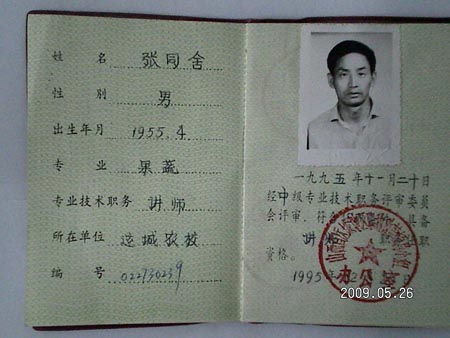 姓 名 张同舍
性 别 男
出生年月 1955.4
专 业 果蔬
专业技术职务 讲师
所在单位 运城农校
编 号 022730239
一九九五年十一月二十日
经中级专业技术职务评审委员
会评审，符合 具备
讲师 职
资格。
办公室
1995年 2
2009.05.26